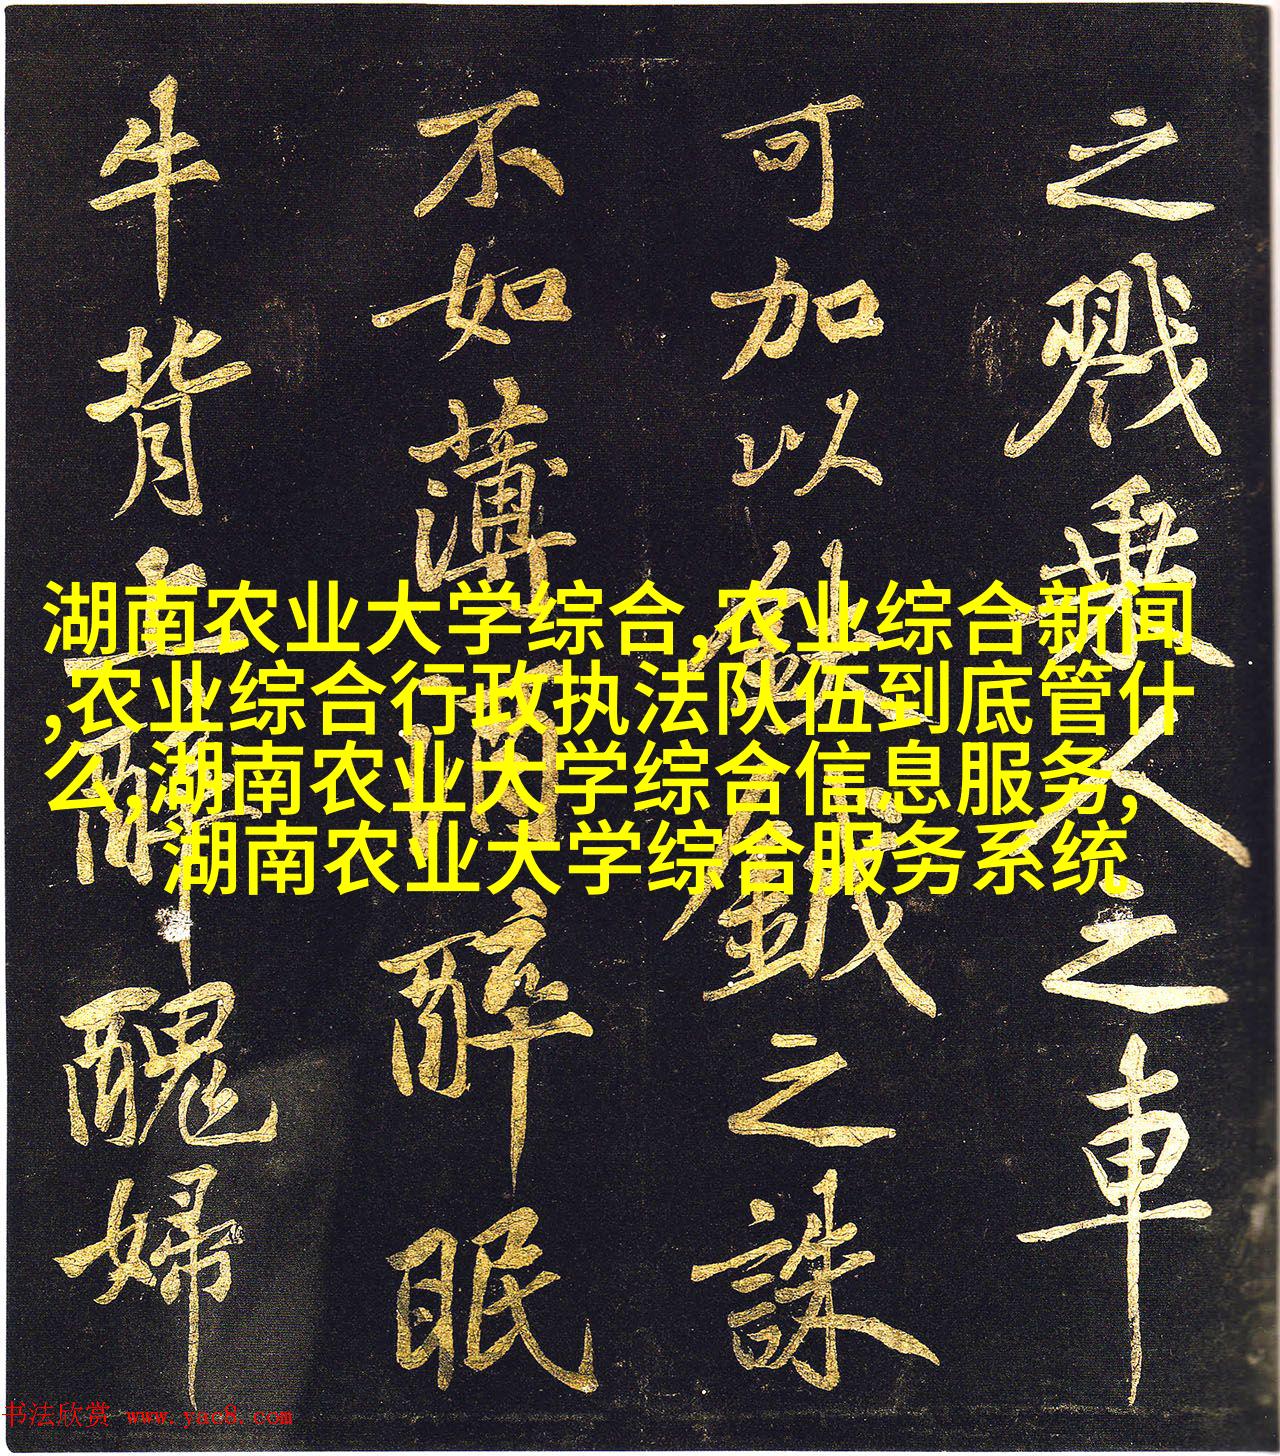 之戮乘人之車
可加以鈇鉞之誅
不如薄酒醉眠
牛背上醉醜婦
湖南农业大学综合,农业综合新闻
,农业综合行政执法队伍到底管什
么,湖南农业大学综合信息服务,
湖南农业大学综合服务系统
书法欣赏 www.yac8.com